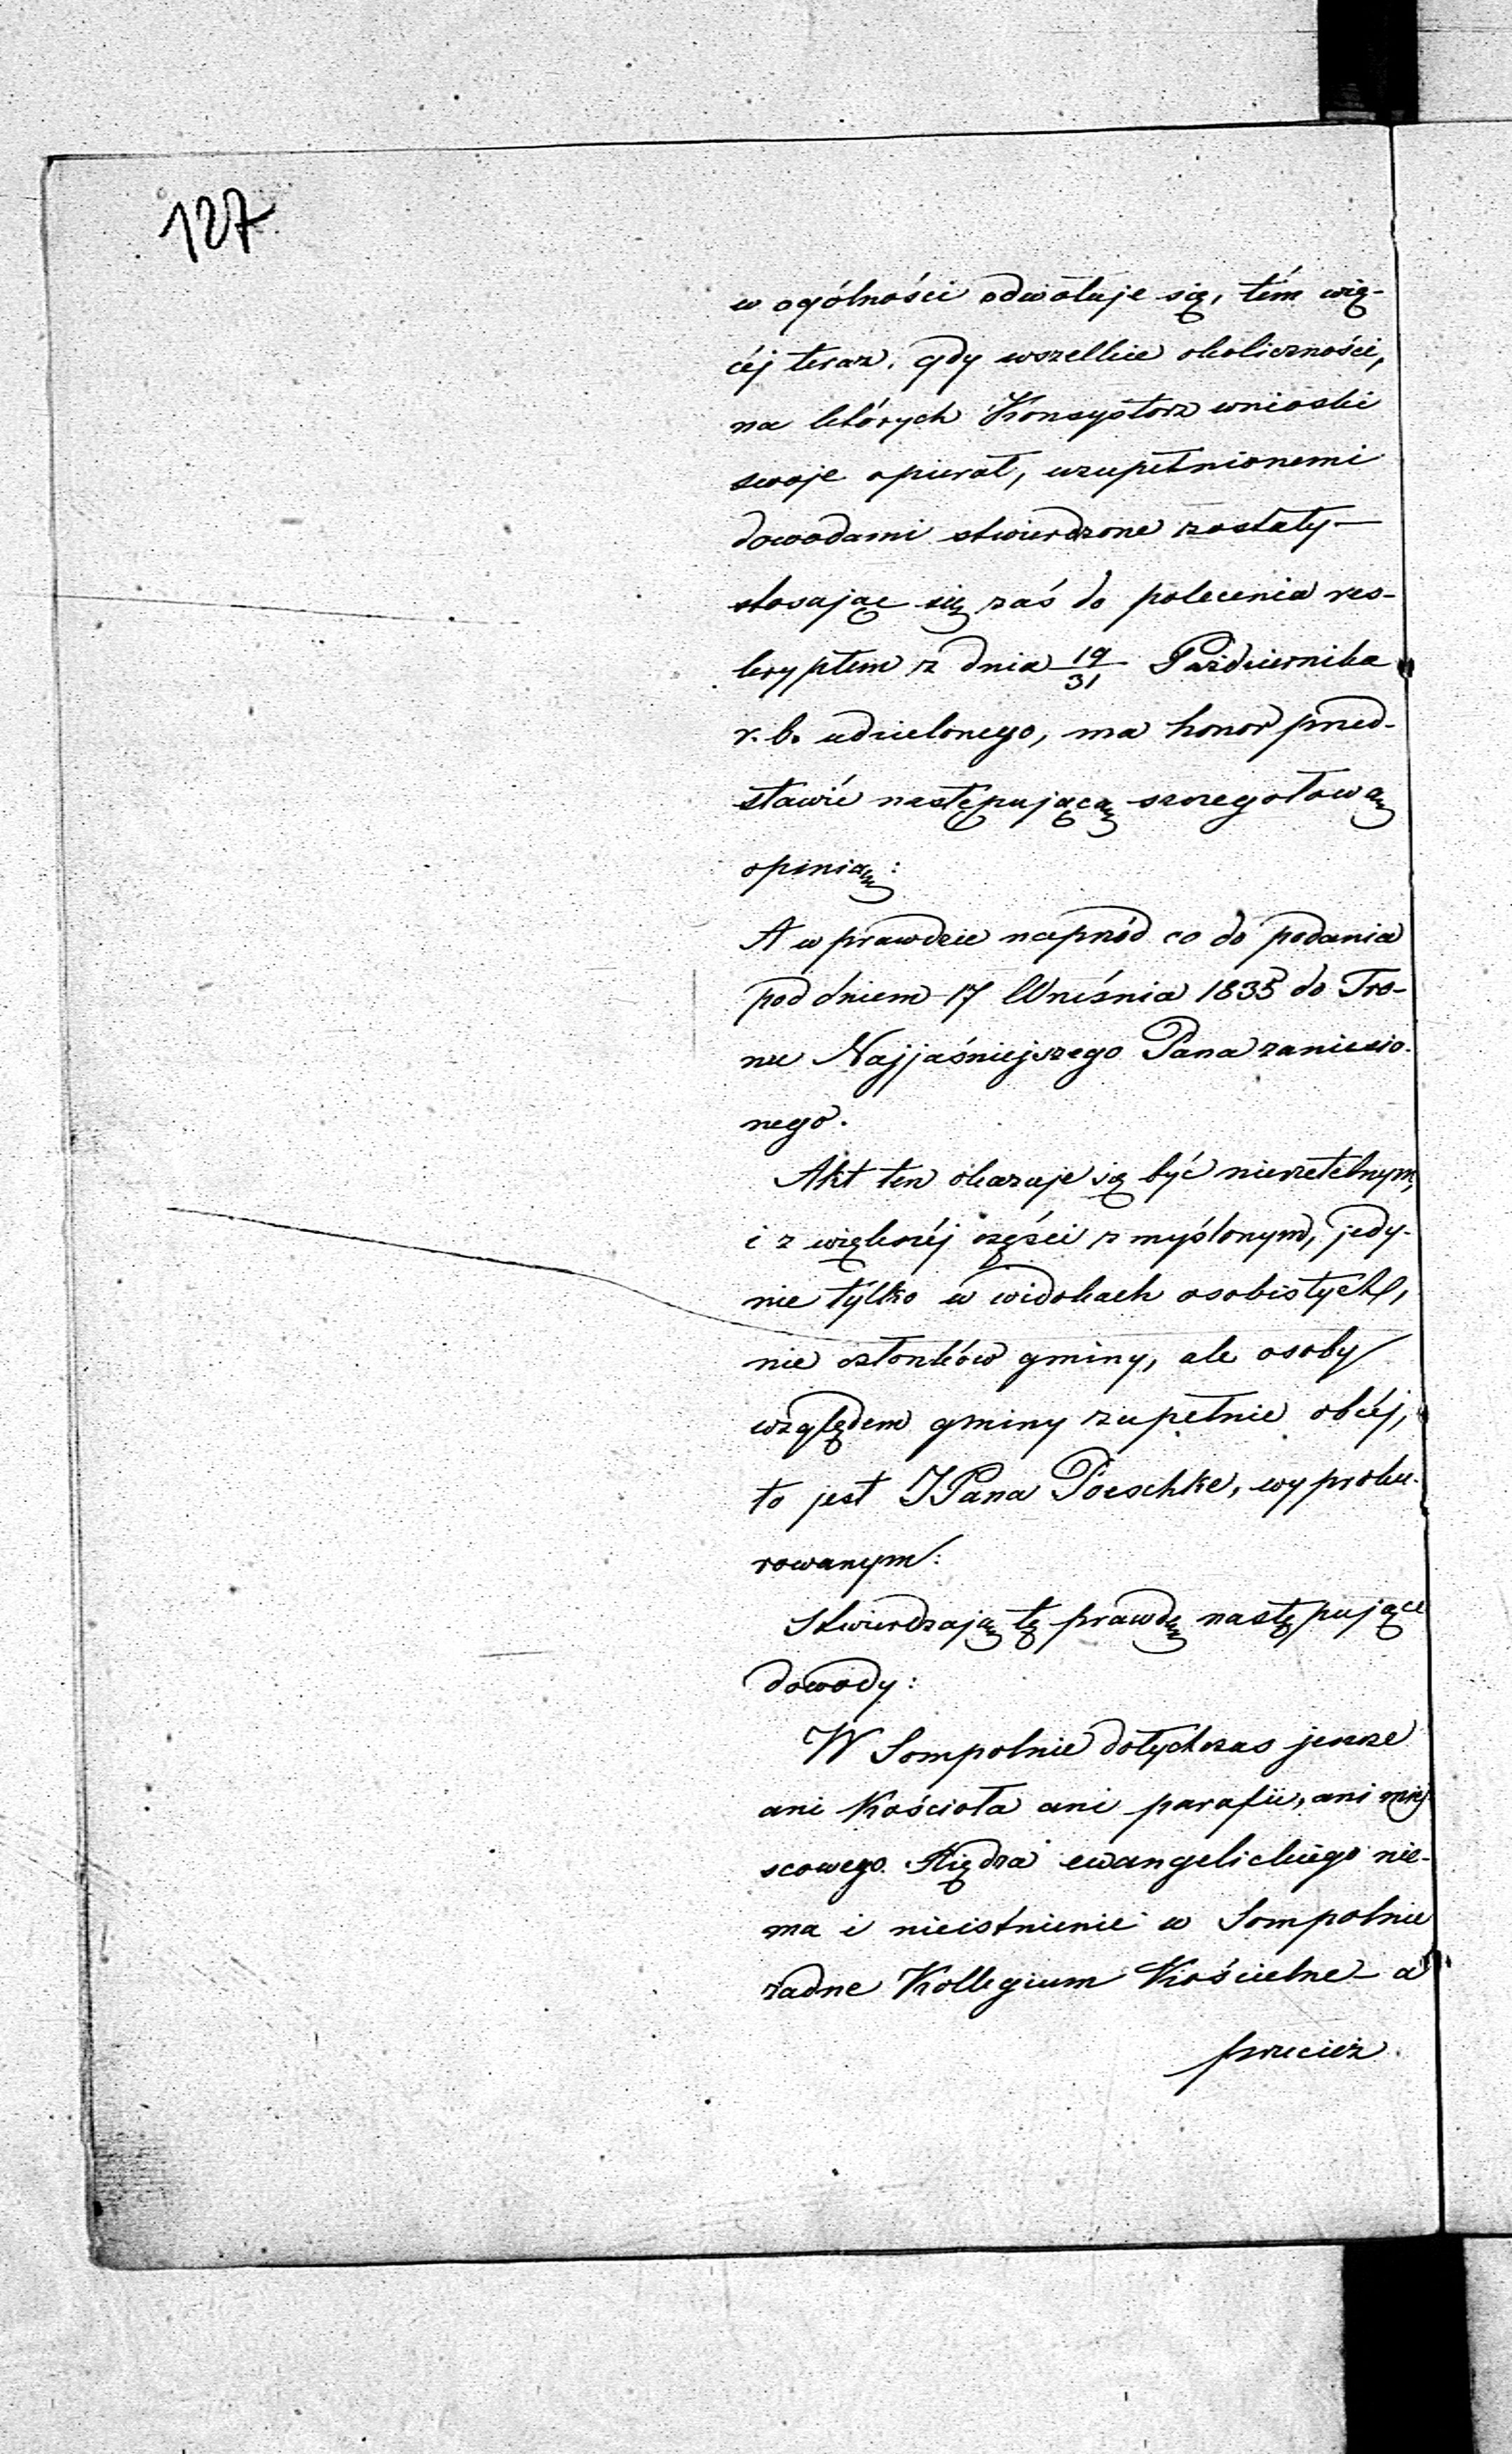 127
w ogólności odwołuje się, tém wię-
céj teraz, gdy wszelkie okoliczności,
na których Konsystorz wnioski
swoje opierał, uzupełnionemi
dowodami stwierdzone zostały —
stosując się zaś do polecenia res-
kryptem z dnia 19/31 Października
r. b. udzielonego, ma honor przed-
stawić następującą szczegołową
opinią:
A w prawdzie naprzód co do podania
pod dniem 17 Września 1835 do Tro-
nu Najjaśniejszego Pana zaniesio-
nego.
Akt ten okazuje się być nierzetelnym,
i z większéj części zmyślonym, jedy-
nie tylko w widokach osobistych,
nie członków gminy, ale osoby
względem gminy zupełnie obcéj,
to jest JPana Poeschke, wyproku-
rowanym:
Stwierdzają tę prawdę następujące
dowody:
W Sompolnie dotychczas jeszcze
ani Kościoła ani parafii, ani miej
scowego Księdza ewangelickiego nie-
ma i nieistnienie w Sompolnie
żadne Kollegium Kościelne — a
przecież